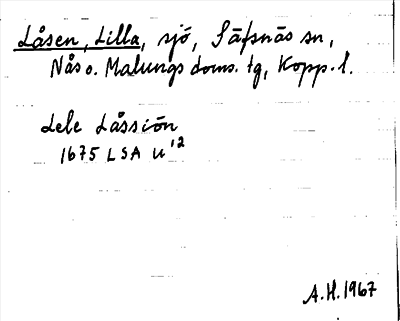 Låsen, Lilla, sjö, Säfsnäs sn,
Nås o. Malungs doms. tg, Kopp. l.
Lele Låssiön
1675 LSA U¹²
A.H. 1967